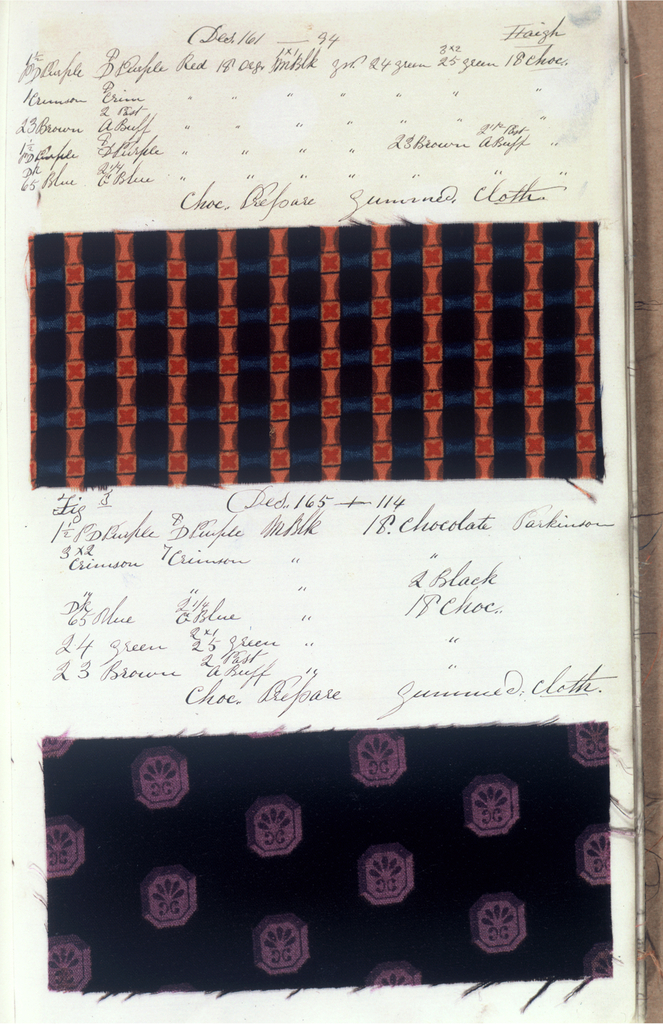 Des. 161 — 34 Haigh
1½ PD Purple P D Purple Red 18 Oxgs 1x1 MBlk 24 green 3x2 25 green 18 Choc.
1 Crimson P Crim " " " " " " "
23 Brown 2 Past A Buff " " " " " " "
1½ PD Purple P D Purple " " " " 23 Brown 2 Past A Buff "
Dk 65 Blue 2¼ C Blue " " " " " " "
Choc. Prepare Gummed Cloth.
Fig 3 Des. 165 + 114
1½ PD Purple P D Purple MBlk 18 Chocolate Parkinson
3x2 Crimson 7 Crimson " "
" " " 2 Black
Dk 65 Blue 2¼ C Blue " 18 Choc.
24 green 2x1 25 green " "
23 Brown 2 Past A Buff " "
Choc. Prepare Gummed Cloth.